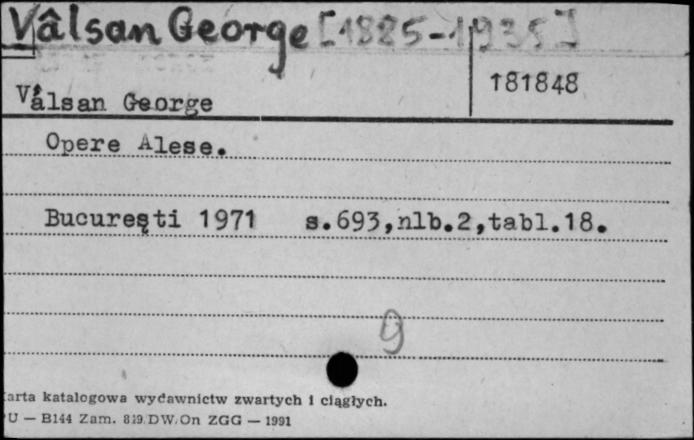 Vâlsan George [1885-1935]
181848
Vâlsan George
Opere Alese.
Bucureşti 1971 s.693,nlb.2,tabl.18.
9
arta katalogowa wydawnictw zwartych i ciągłych.
U — B144 Zam. 819 DW.On ZGG — 1991